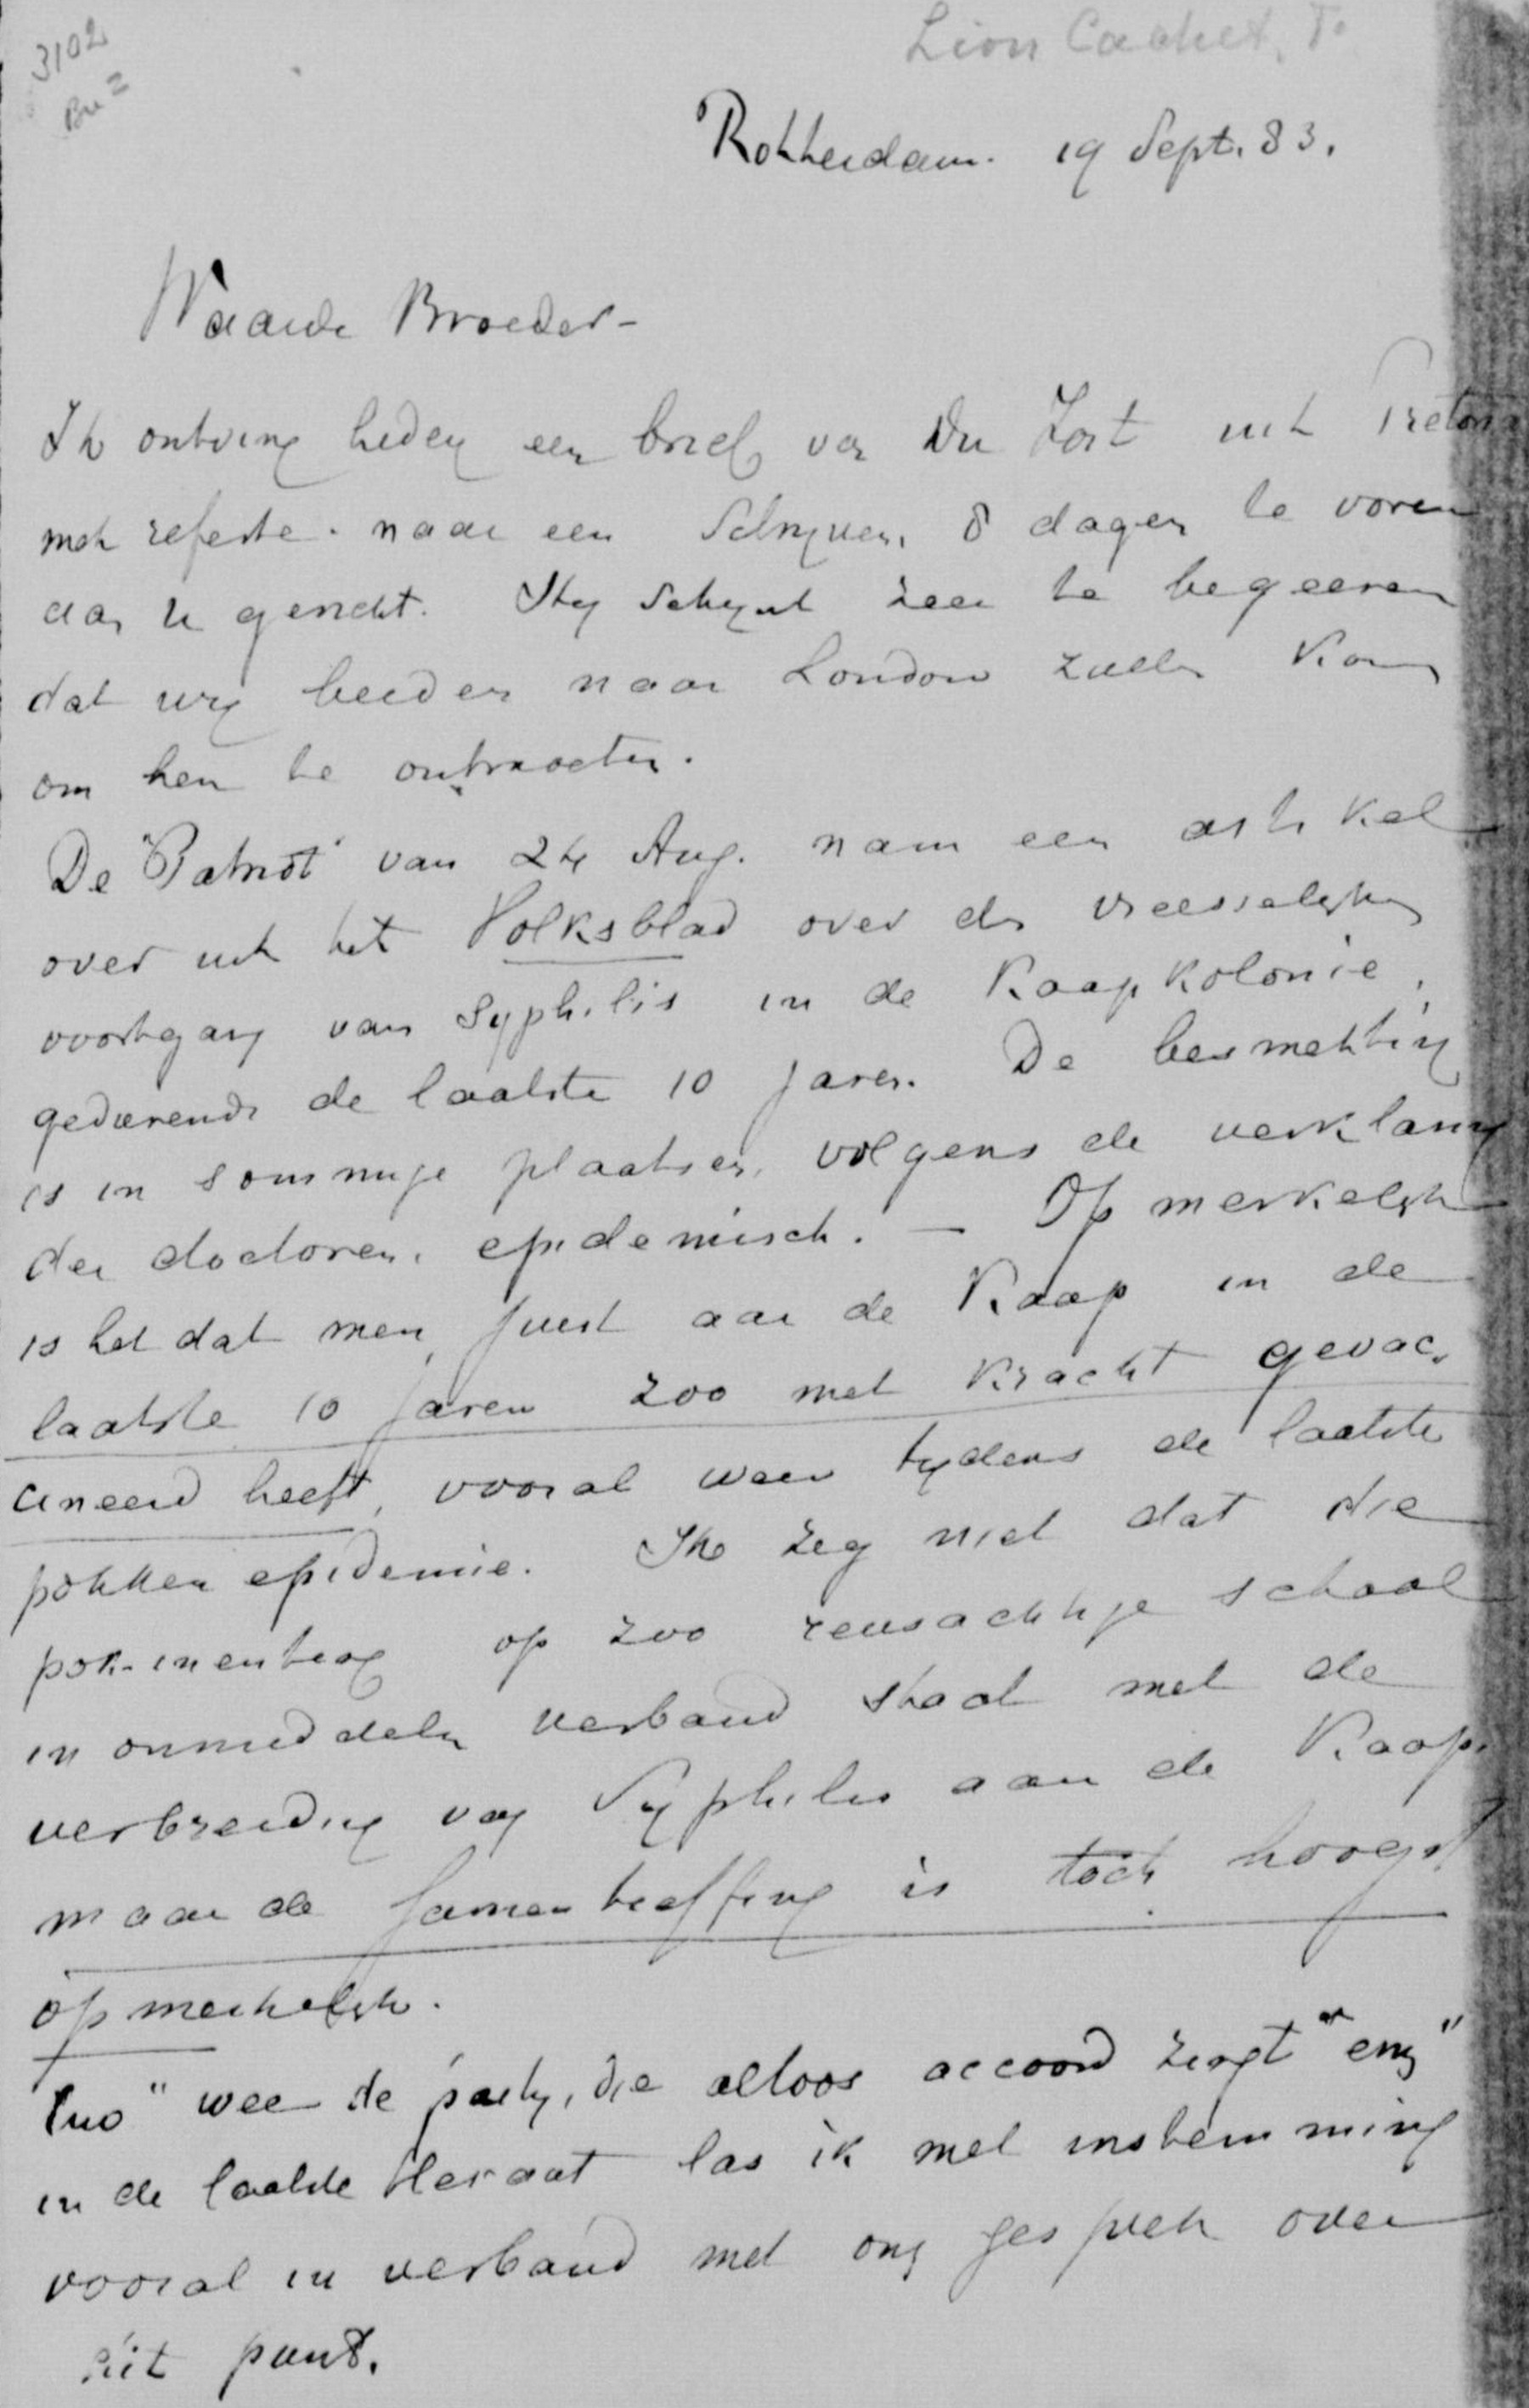 3102
Lion Cachet, F.
Rotterdam. 19 Sept. 83.
Waarde Broeder -
Ik ontving heden een brief van Du Toit uit Pretoria
met referte naar een schrijven, 8 dagen te voren
aan U gericht. Hij schijnt zeer te begeeren
dat wij beiden naar London zullen komen
om hen te ontmoeten.
De "Patriot" van 24 Aug. nam een artikel
over uit het Volksblad over den vreesselijken
voortgang van Syphilis in de Kaapkolonie,
gedurende de laatste 10 jaren. De besmetting
is in sommige plaatsen, volgens de verklaring
der doctoren, epidemisch. — Opmerkelijk
is het dat men juist aan de Kaap in de
laatste 10 jaren zoo met kracht gevac-
cineerd heeft, vooral weer tydens de laatste
pokken epidemie. Ik zeg niet dat die
pok-inenting op zoo reusachtige schaal
in onmiddelijk verband staat met de
verbreiding van Syphilis aan de Kaap,
maar de samentreffing is toch hoogst
opmerkelijk.
Uw "wee de party, die altoos accoord zingt" enz
in de laatste Heraut las ik met instemming
vooral in verband met ons gesprek over
dit punt.